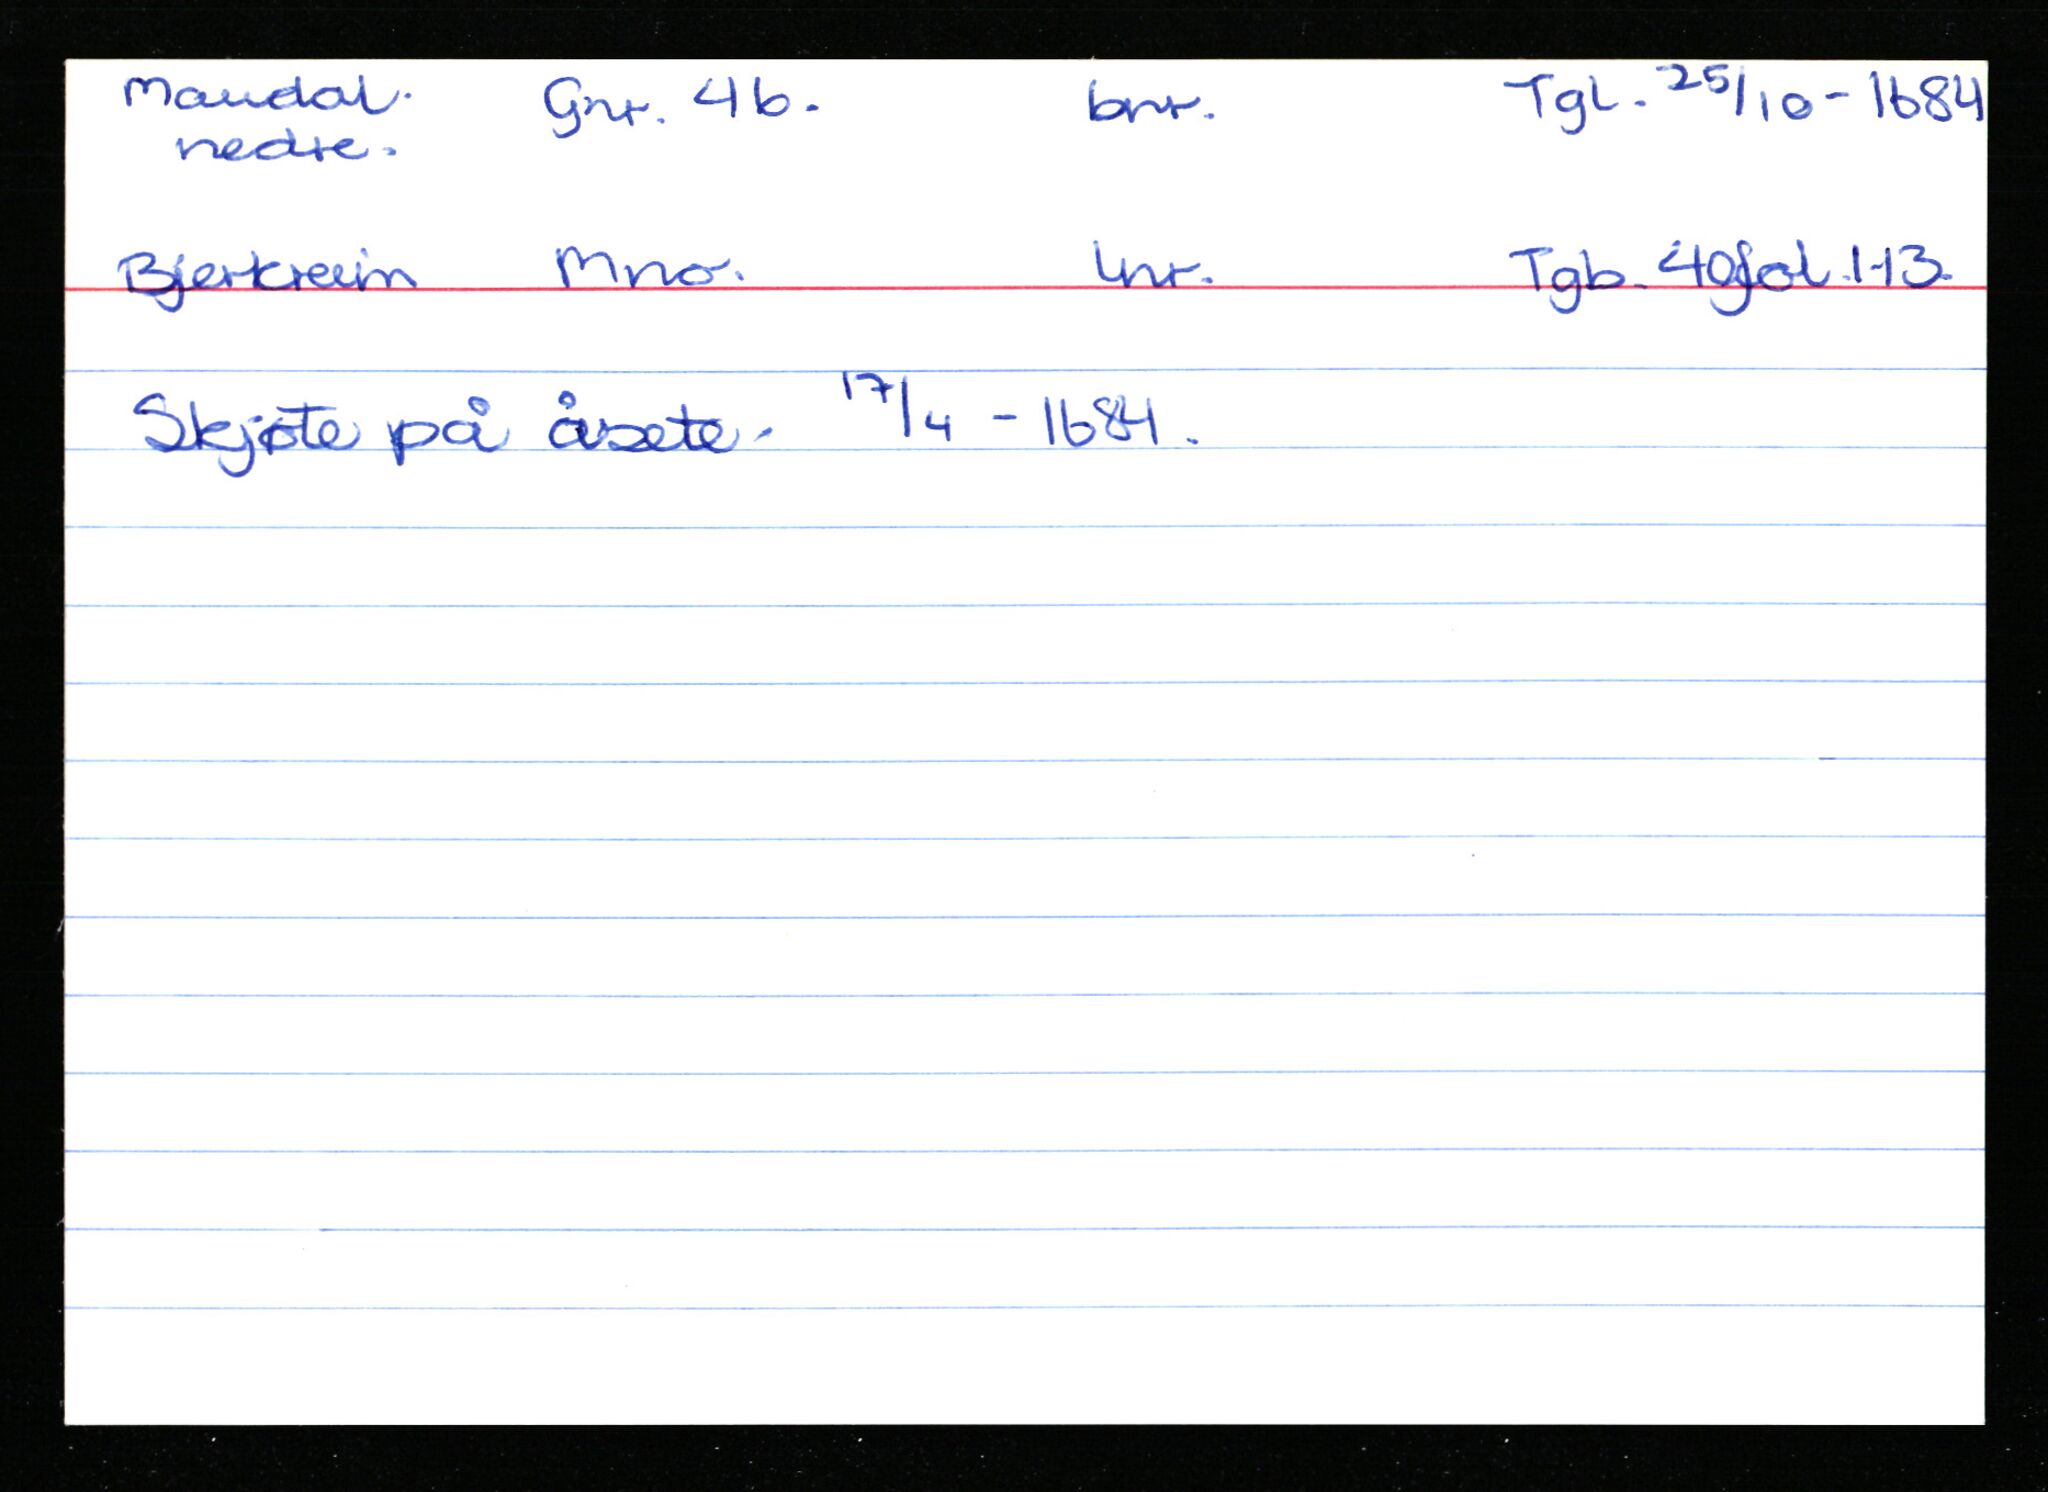 Maudal. Gnr. 46. bnr. Tgl. 25/10 - 1684
nedre.
Bjerkreim Mno. lnr. Tgb. 40 fol. 113.
Skjøte på åsete. 17/4 - 1684.